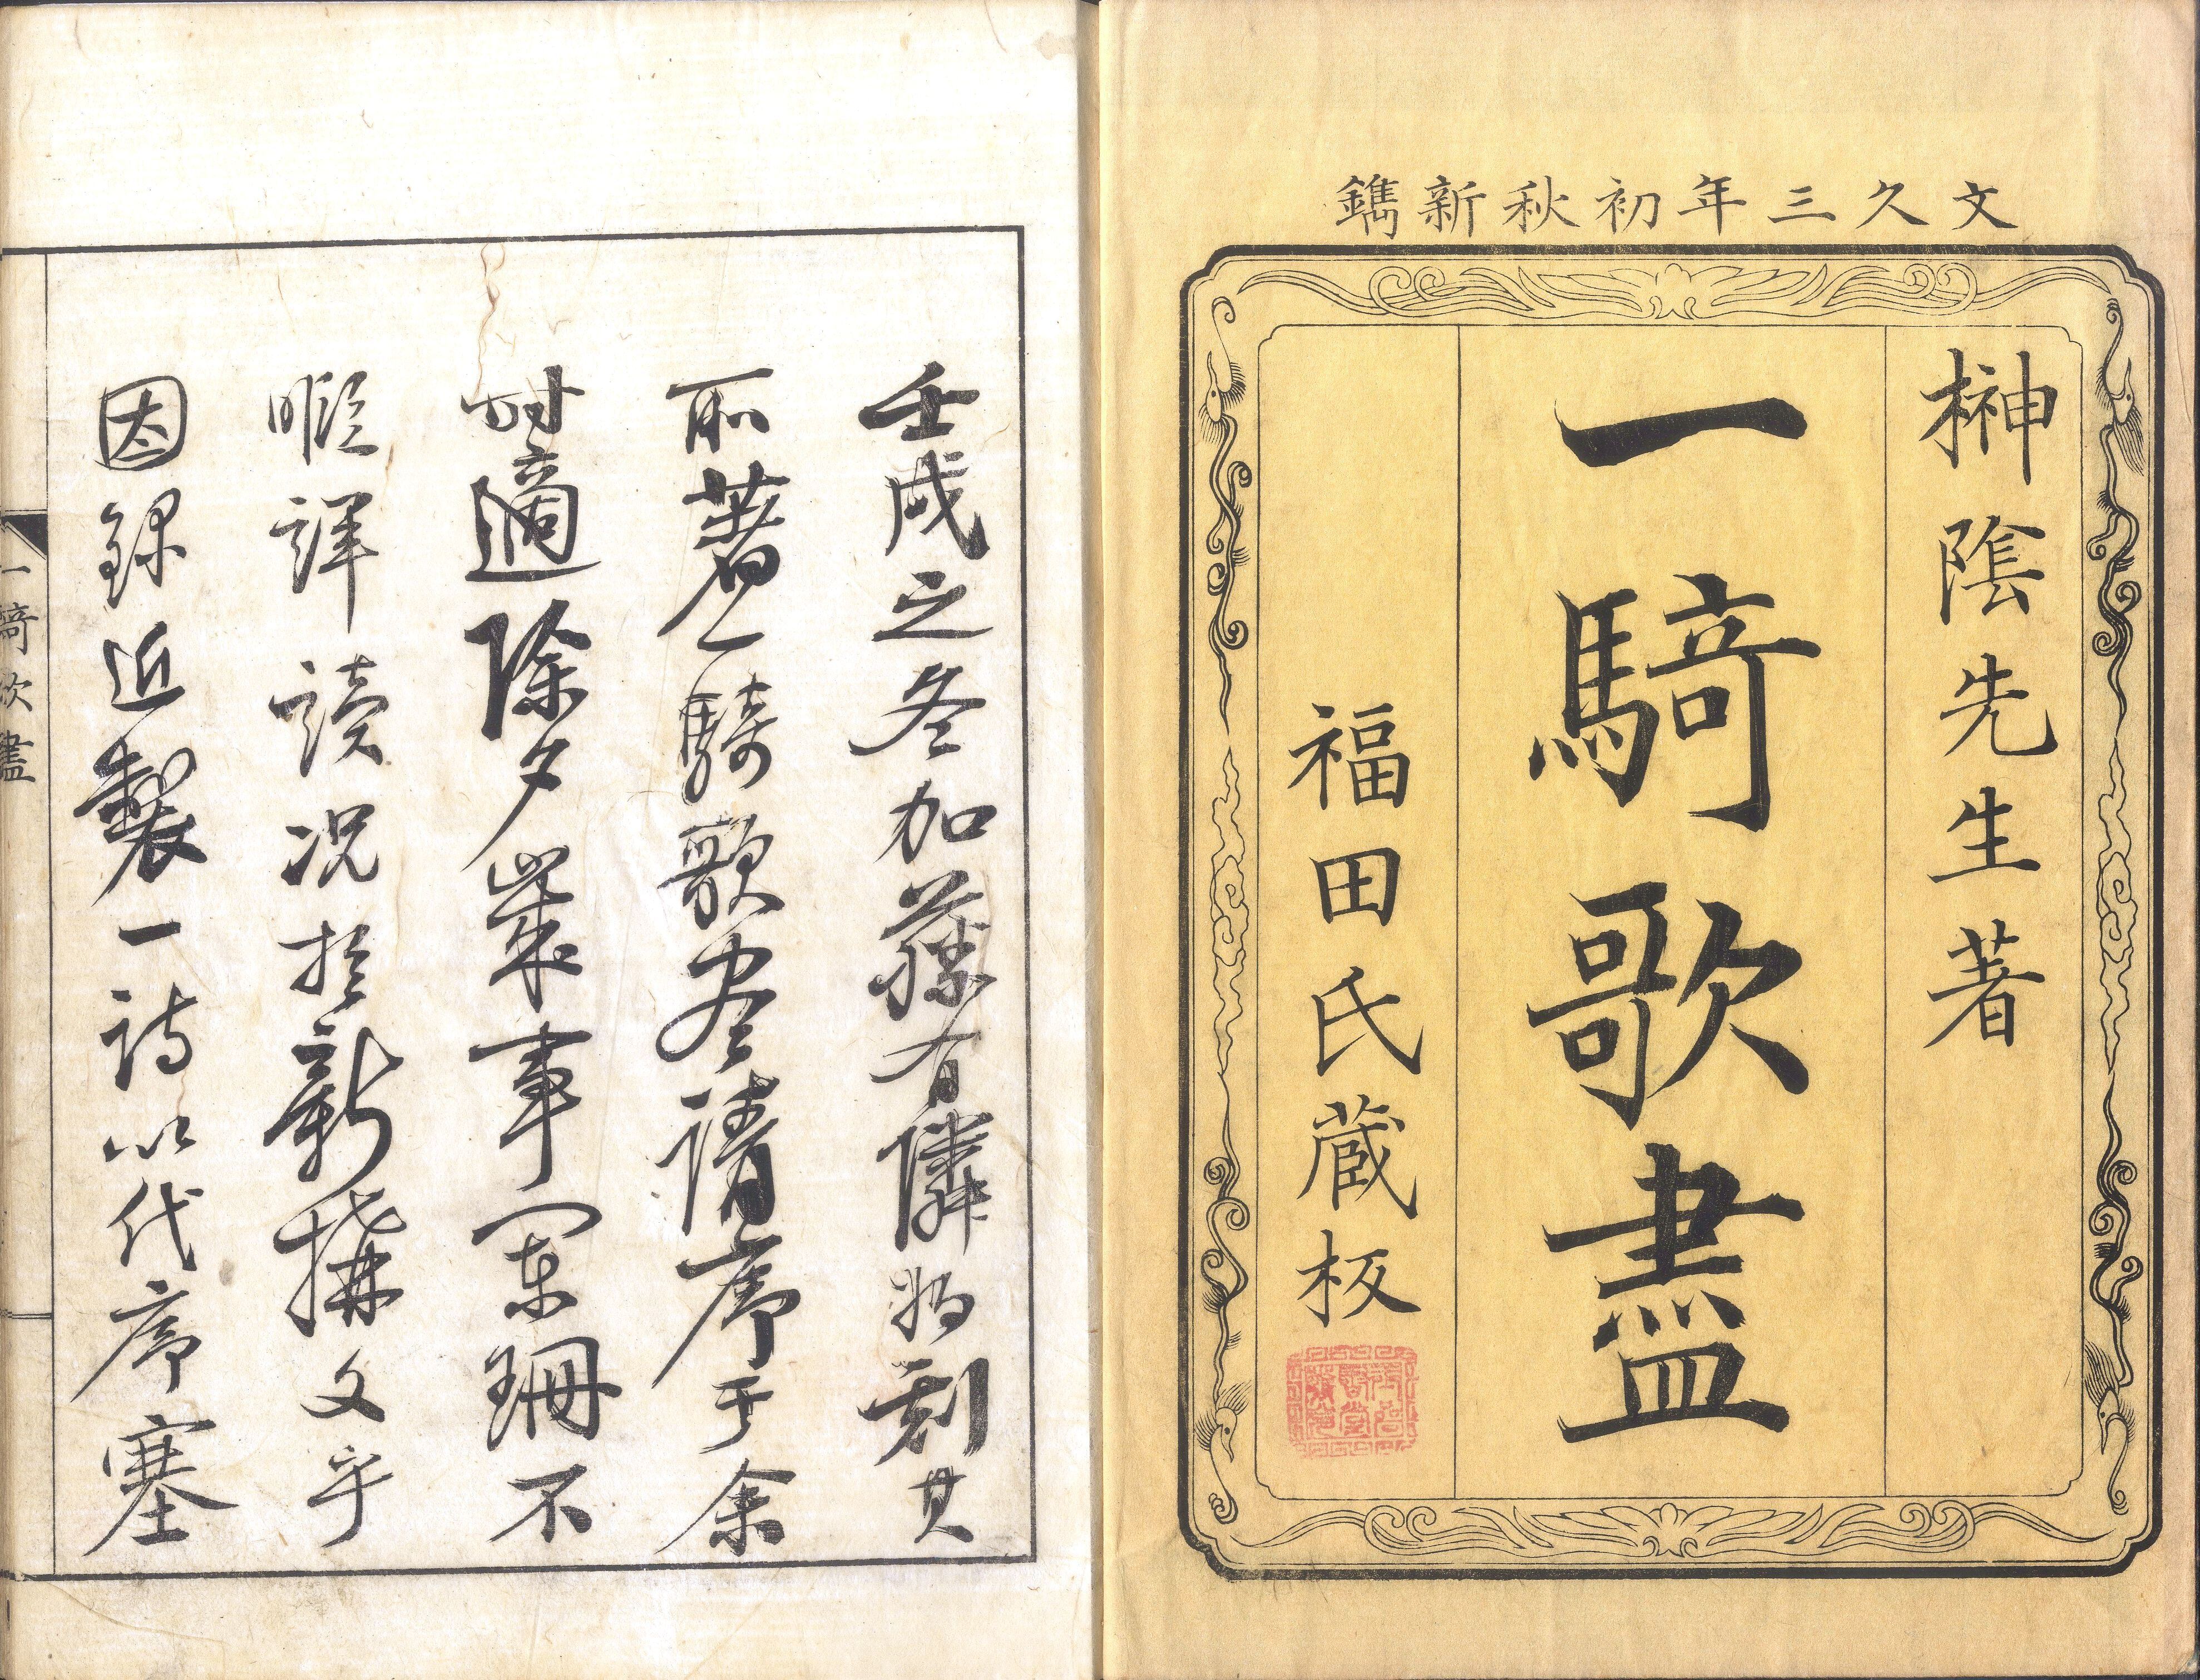 文久三年初秋新鐫
榊陰先生著
一騎歌盡
福田氏蔵板
壬戌之冬加藤有隣将刻其
所著一騎歌尽請序于余
時適除夕業事闌珊不
暇詳読况於新搆文乎
因録近製一詩以代序塞
一騎歌盡